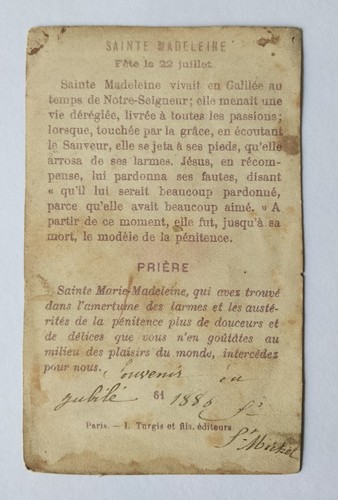 SAINTE MADELEINE
Fête le 22 juillet.
Sainte Madeleine vivait en Galilée au
temps de Notre-Seigneur; elle menait une
vie déréglée, livrée à toutes les passions;
lorsque, touchée par la grâce, en écoutant
le Sauveur, elle se jeta à ses pieds, qu'elle
arrosa de ses larmes. Jésus, en récom-
pense, lui pardonna ses fautes, disant
« qu'il lui serait beaucoup pardonné,
parce qu'elle avait beaucoup aimé. » A
partir de ce moment, elle fut, jusqu'à sa
mort, le modèle de la pénitence.
PRIÈRE
Sainte Marie-Madeleine, qui avez trouvé
dans l'amertume des larmes et les austé-
rités de la pénitence plus de douceurs et
de délices que vous n'en goûtâtes au
milieu des plaisirs du monde, intercédez
pour nous.
Souvenir du
jubilé 61 1886
Paris. — L. Turgis et fils, éditeurs
St Michel